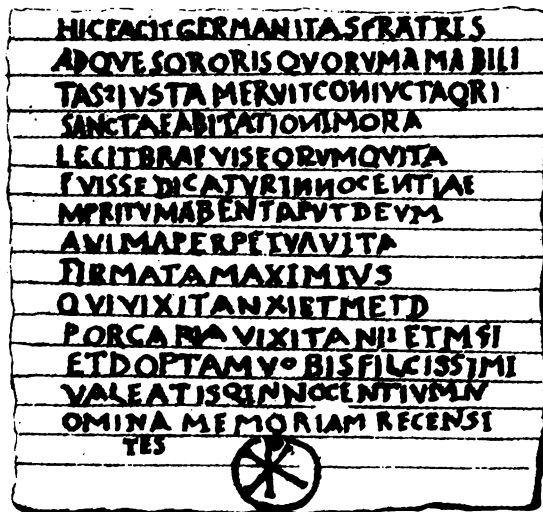 HICEACITGERMANITASFRATRIS
ADQVESORORISQVORVMAMABILI
TASIVSTAMERVITCONIVCTAQRI
SANCTAEABITATIONIMORA
LECITBRAEVISEQRVMQVITA
FVISSEDICATVRINNOCENTIAE
MERITVMABENTAPVTDEVM
ANIMAPERPETVAVITA
FIRMATAMAXIMIVS
QVIVIXITANXIETMETD
PORCARIAVIXITANIIETMSI
ETDOPTAMVOBISFILCISSIMI
VALEATISQINNOCENTIVMN
OMINAMEMORIAMRECENSI
TES